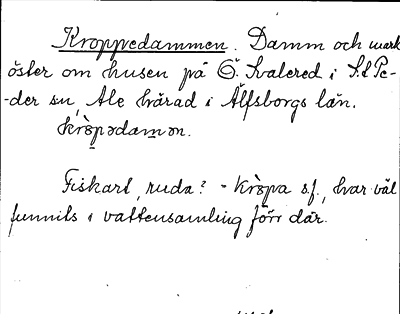 Kroppedammen. Damm och mark
öster om husen på Ö. Svalered i S:t Pe-
-der sn, Ale härad i Älfsborgs län.
krɔ̀pədamən.
Fiskart, ruda? - Krɔ̀pa sf., har väl
funnits i vattensamling förr där.